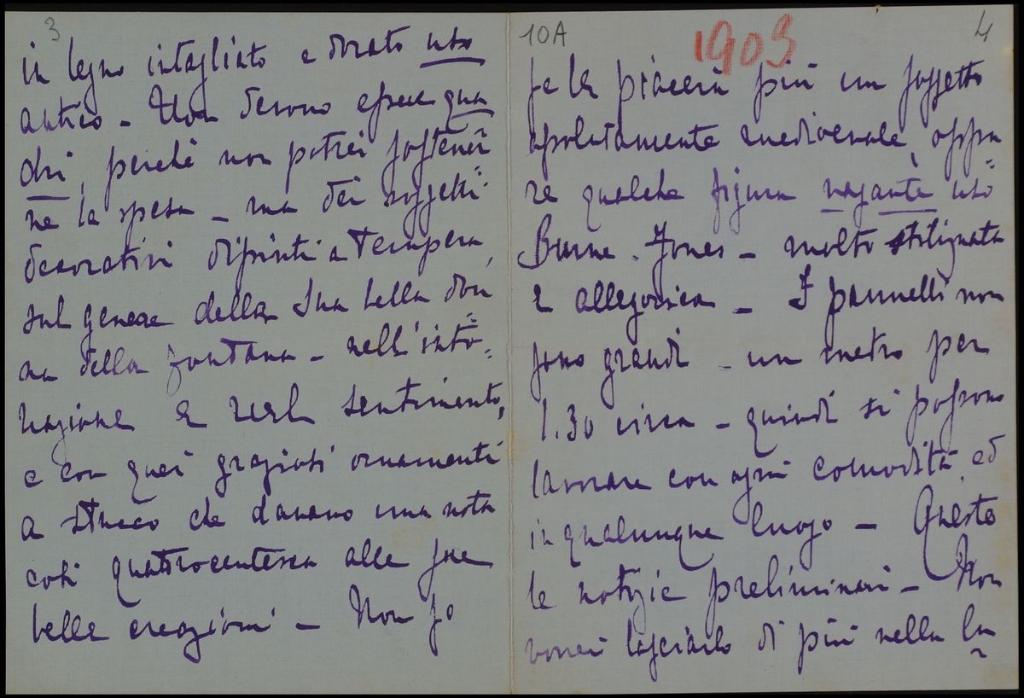 3
in legno intagliato e dorato uso
antico - Non devono essere qua
dri, perché non potrei sostener
ne la spesa - ma dei soggetti
decorativi dipinti a tempera,
sul genere della Sua bella don
na della fontana - nell'into=
nazione e nel sentimento,
e con quei graziosi ornamenti
a stucco che davano una nota
così quattrocentesca alle sue
belle creazioni - Non so
10A 1903 4
se le piacerà più un soggetto
assolutamente medioevale, oppu
re qualche figura vagante uso
Burne-Jones - molto stilizzata
e allegorica - I pannelli non
sono grandi - un metro per
1.30 circa - quindi si possono
lavorare con ogni comodità, ed
in qualunque luogo - Queste
le notizie preliminari - Non
vorrei lasciarlo di più nella in